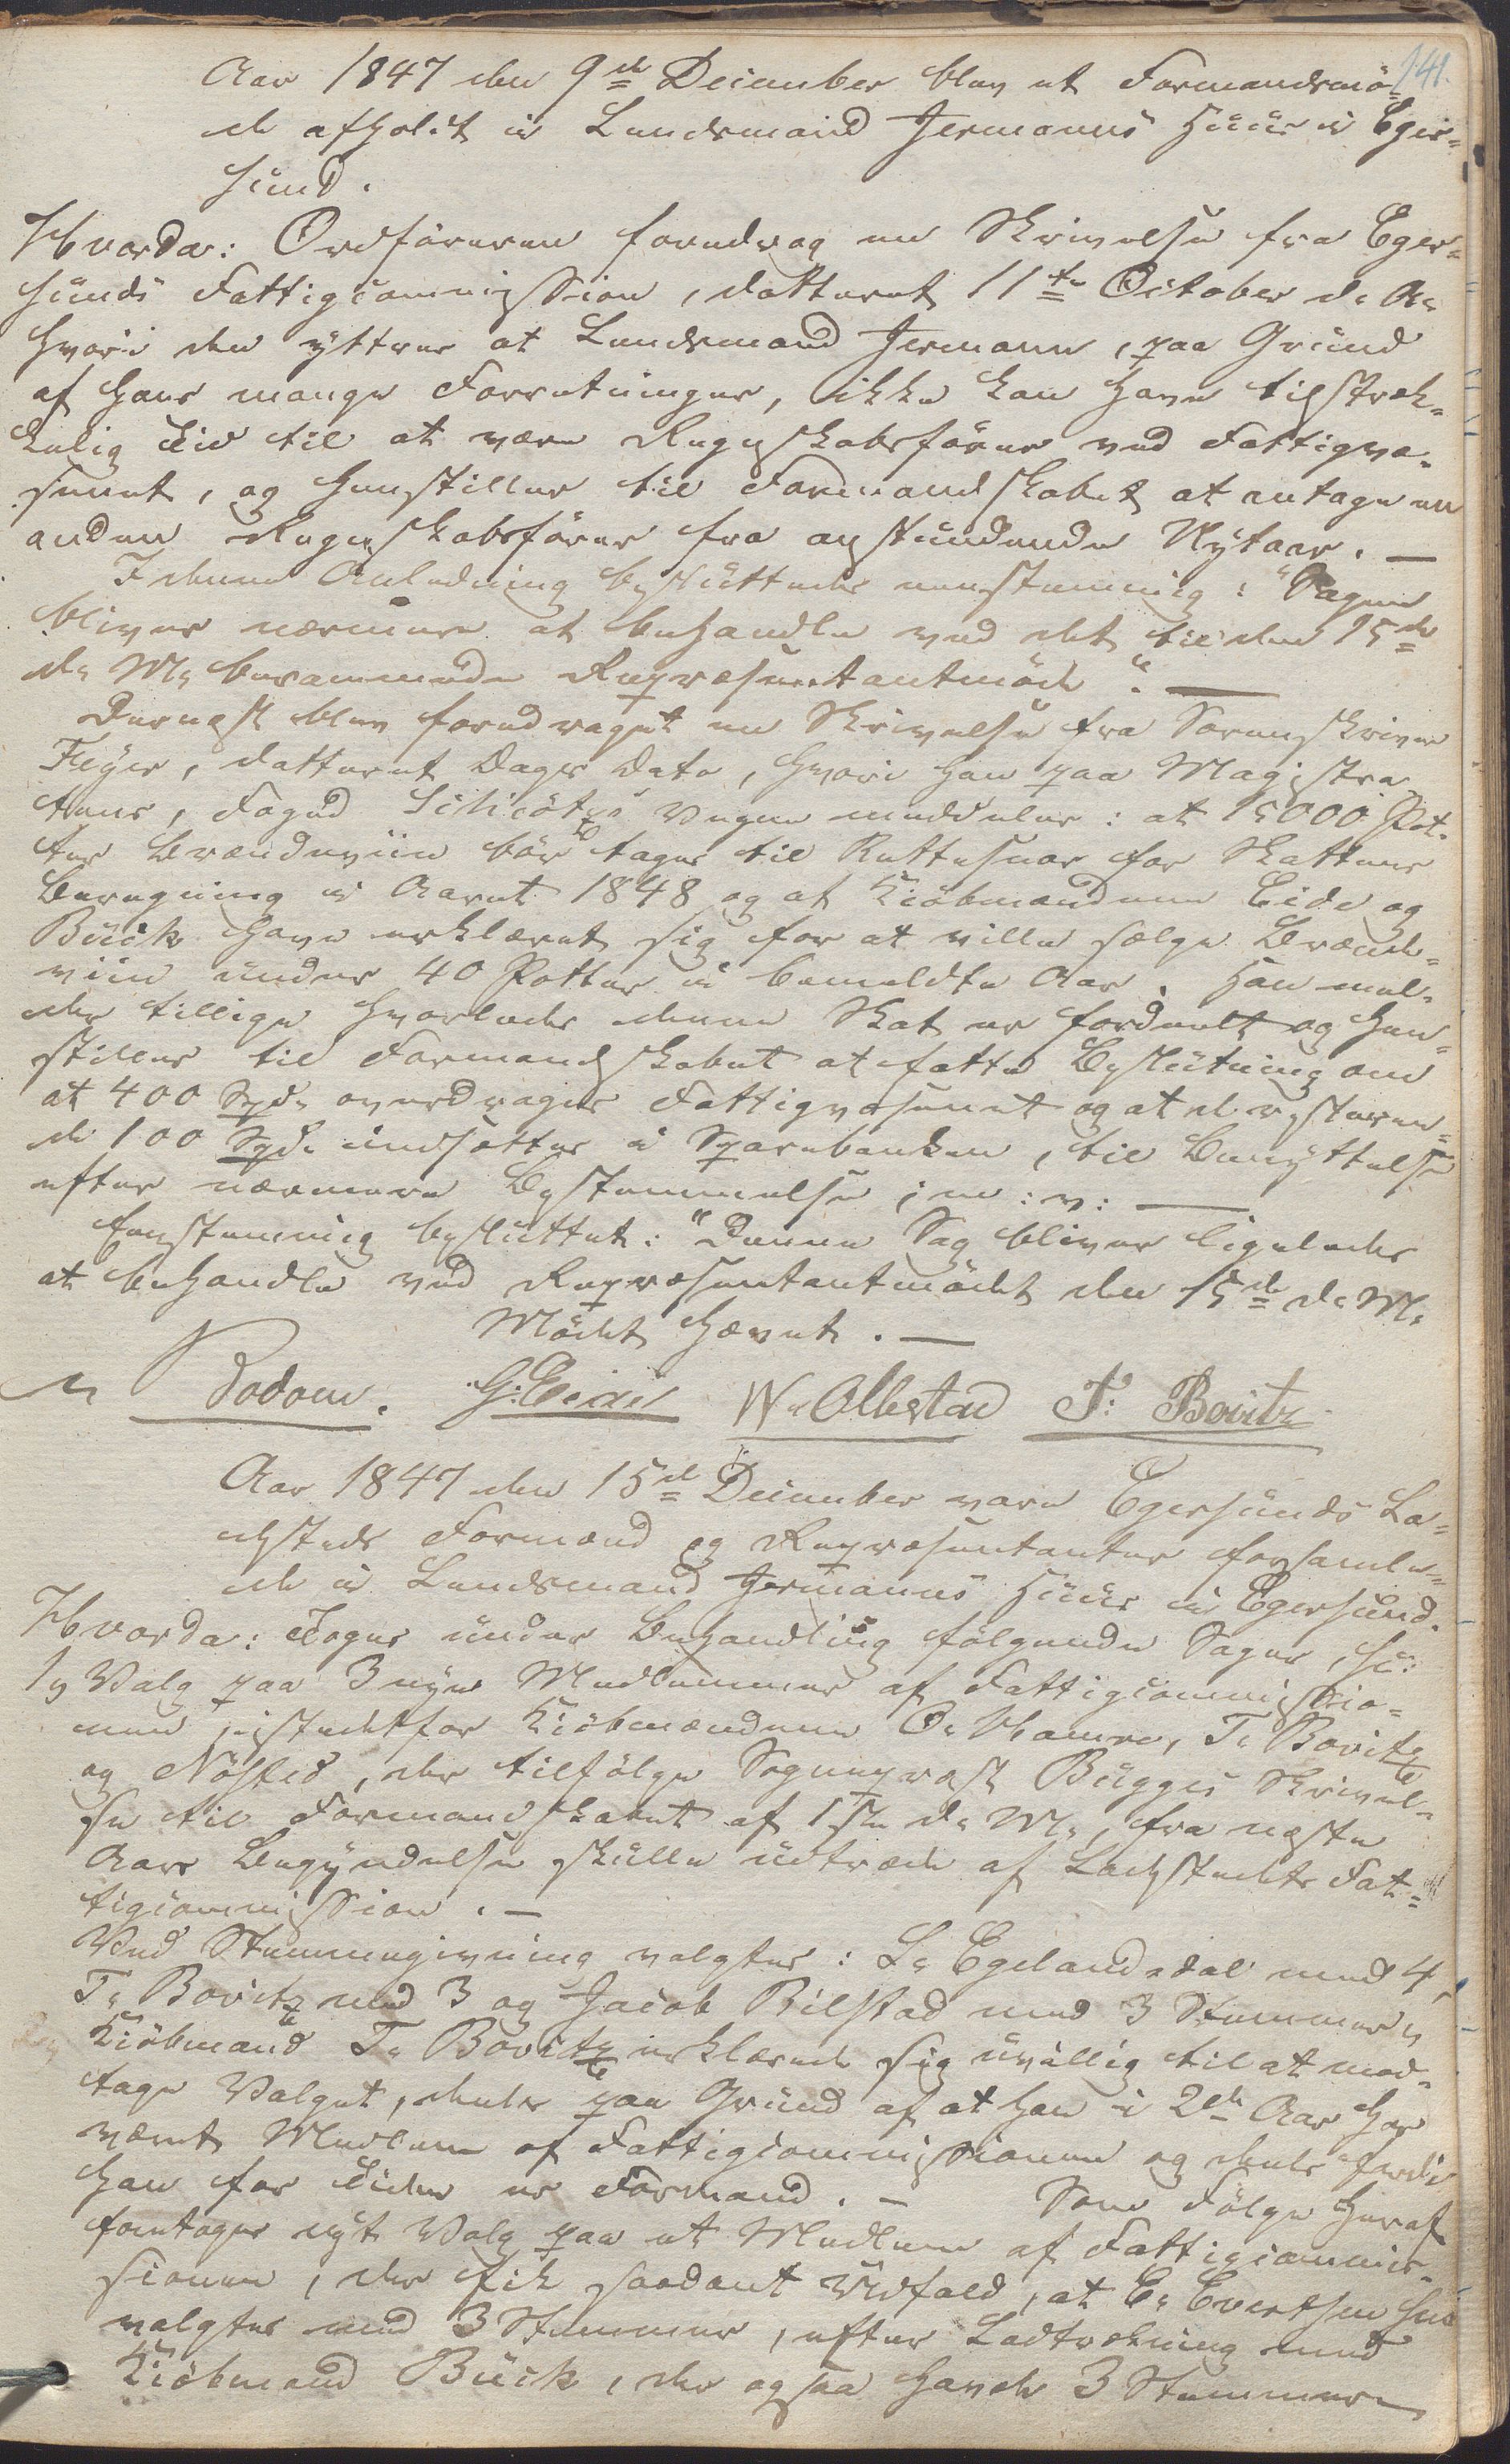 141.
Aar 1847 den 9de December blev et Formandsmö-
de afholdt i Lensmand Jermanns Huus i Eger-
sund.
Hvorda: Ordföreren foredrog en Skrivelse fra Eger-
sunds Fattigcommission, datteret 11te October d. A.
hvori den yttrer at Lensmand Jermann, paa Grund
af hans mange Forretninger, ikke kan have tilstræk-
kelig Tid til at være Regnskabsförer ved Fattigvæ-
senet, og henstiller til Formandskabet at antage en
anden Regnskabsförer fra anstundende Nytaar. —
I denne Anledning besluttedes eenstemmig: "Sagen
bliver nærmere at behandle ved det til den 15de
d. M. berammede Repræsentantmöde". —
Dernæst blev foredraget en Skrivelse fra Sorenskriver
Feyer, datteret Dags Dato, hvori han paa Magistra-
tens, Foged Schiötz's Vegne meddeler: at 15000 Pot-
ter Brændeviin bör tages til Rettesnor for Skattens
Beregning i Aaret 1848 og at Kiöbmændene Eide og
Buck have erklæret sig for at ville sælge Brænde-
viin under 40 Potter i bemeldte Aar. Han mel-
der tillige hvorledes denne Skat er fordeelt og hen-
stiller til Formandskabet at fatte Beslutning om
at 400 Spd. overdrages Fattigvæsenet og at de resteren-
de 100 Spd. indsættes i Sparebanken, til Benyttelse
efter nærmere Bestemmelse; m: v: —
Eenstemmig besluttet: "Denne Sag bliver ligeledes
at behandle ved Repræsentantmödet den 15de d. M.
Mödet hævet. —
Rodom. G: Eide W. Ollestad T: Bowitz
Aar 1847 den 15de December vare Egersunds La-
desteds Formænd og Repræsentanter forsamle-
de i Lensmand Jermanns Huus i Egersund.
Hvorda: Toges under Behandling fölgende Sager, sc:
1, Valg paa 3 nye Medlemmer af Fattigcommissio-
nen istedetfor Kiöbmændene O. Hamre, T. Bowitz
og Nösted, der tilfölge Sognepræst Bugges Skrivel-
se til Formandskabet af 1ste d. M., fra næste
Aars Begyndelse skulle udtræde af Ladestedets Fat-
tigcommission. —
Ved Stemmegivning valgtes: L. Egelandsdal med 4,
T. Bowitz med 3 og Jacob Bilstad med 3 Stemmer,
Kiöbmand T. Bowitz erklærede sig uvillig til at mod-
tage Valget, deels paa Grund af at han i 2de Aar har
været Medlem af Fattigcommissionen og deels fordi
han for Tiden er Formand. — Som Fölge heraf
foretoges nyt Valg paa et Medlem af Fattigcommis-
sionen, der fik saadant Udfald, at E. Evertsen
valgtes med 3 Stemmer, efter Lodtrækning med
Kiöbmand Buck, der ogsaa havde 3 Stemmer